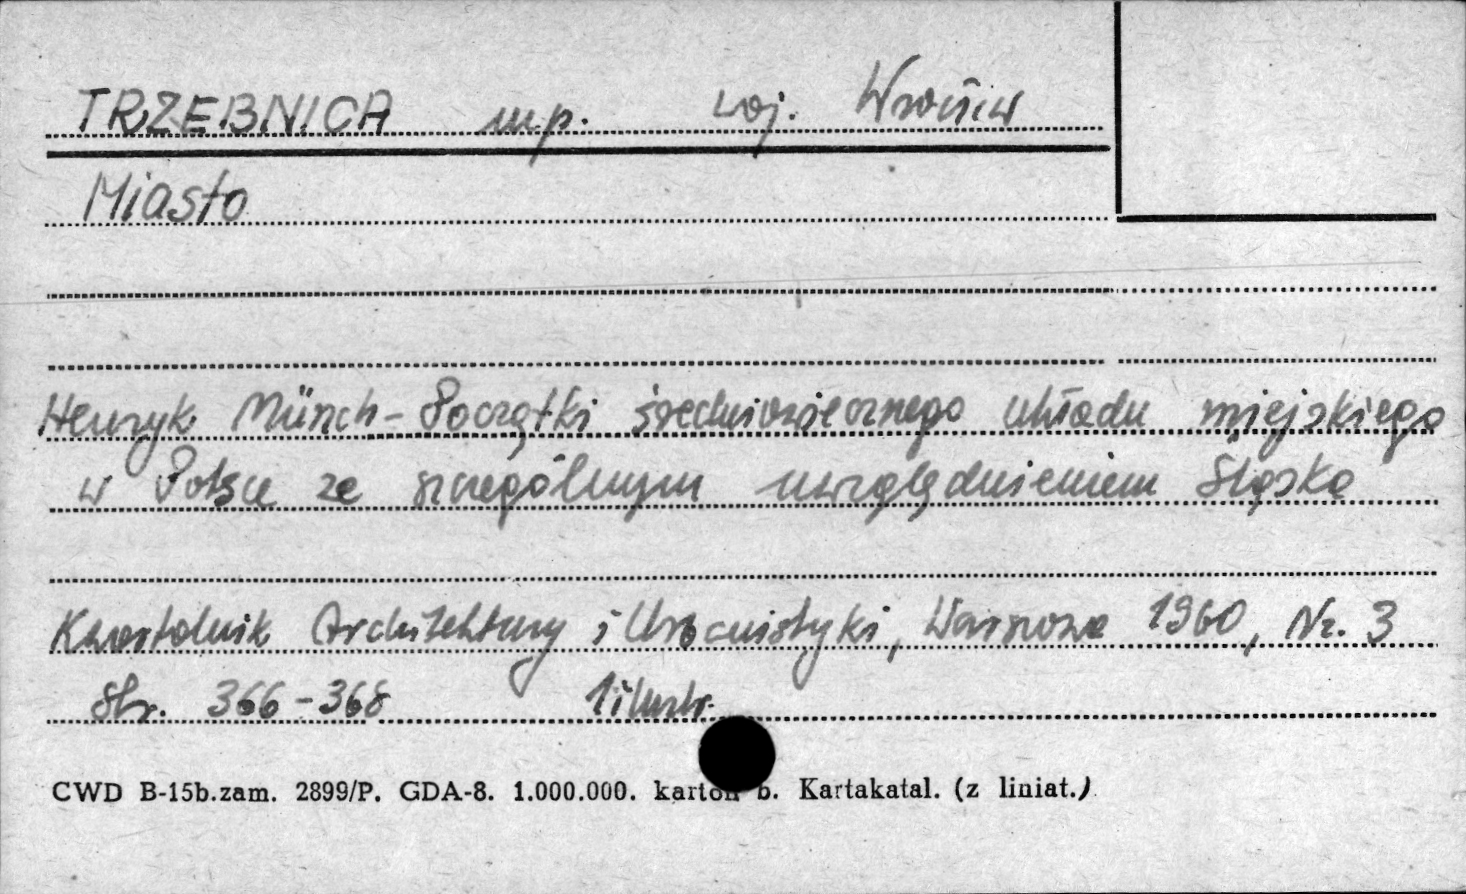 TRZEBNICA mp. woj. Wrocław
Miasto
Henryk Münch - Początki średniowiecznego układu miejskiego
w Polsce ze szczególnym uwzględnieniem Śląska
Kwartalnik Architektury i Urbanistyki, Warszawa 1960, Nr. 3
Str. 366-368 1 ilustr.
CWD B-15b.zam. 2899/P. GDA-8. 1.000.000. karton b. Kartakatal. (z liniat.)